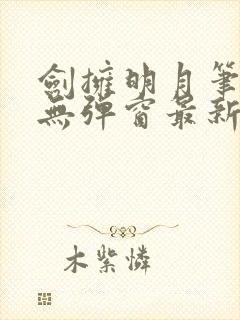 劍擁明月筆
無彈窗最新
木紫憐